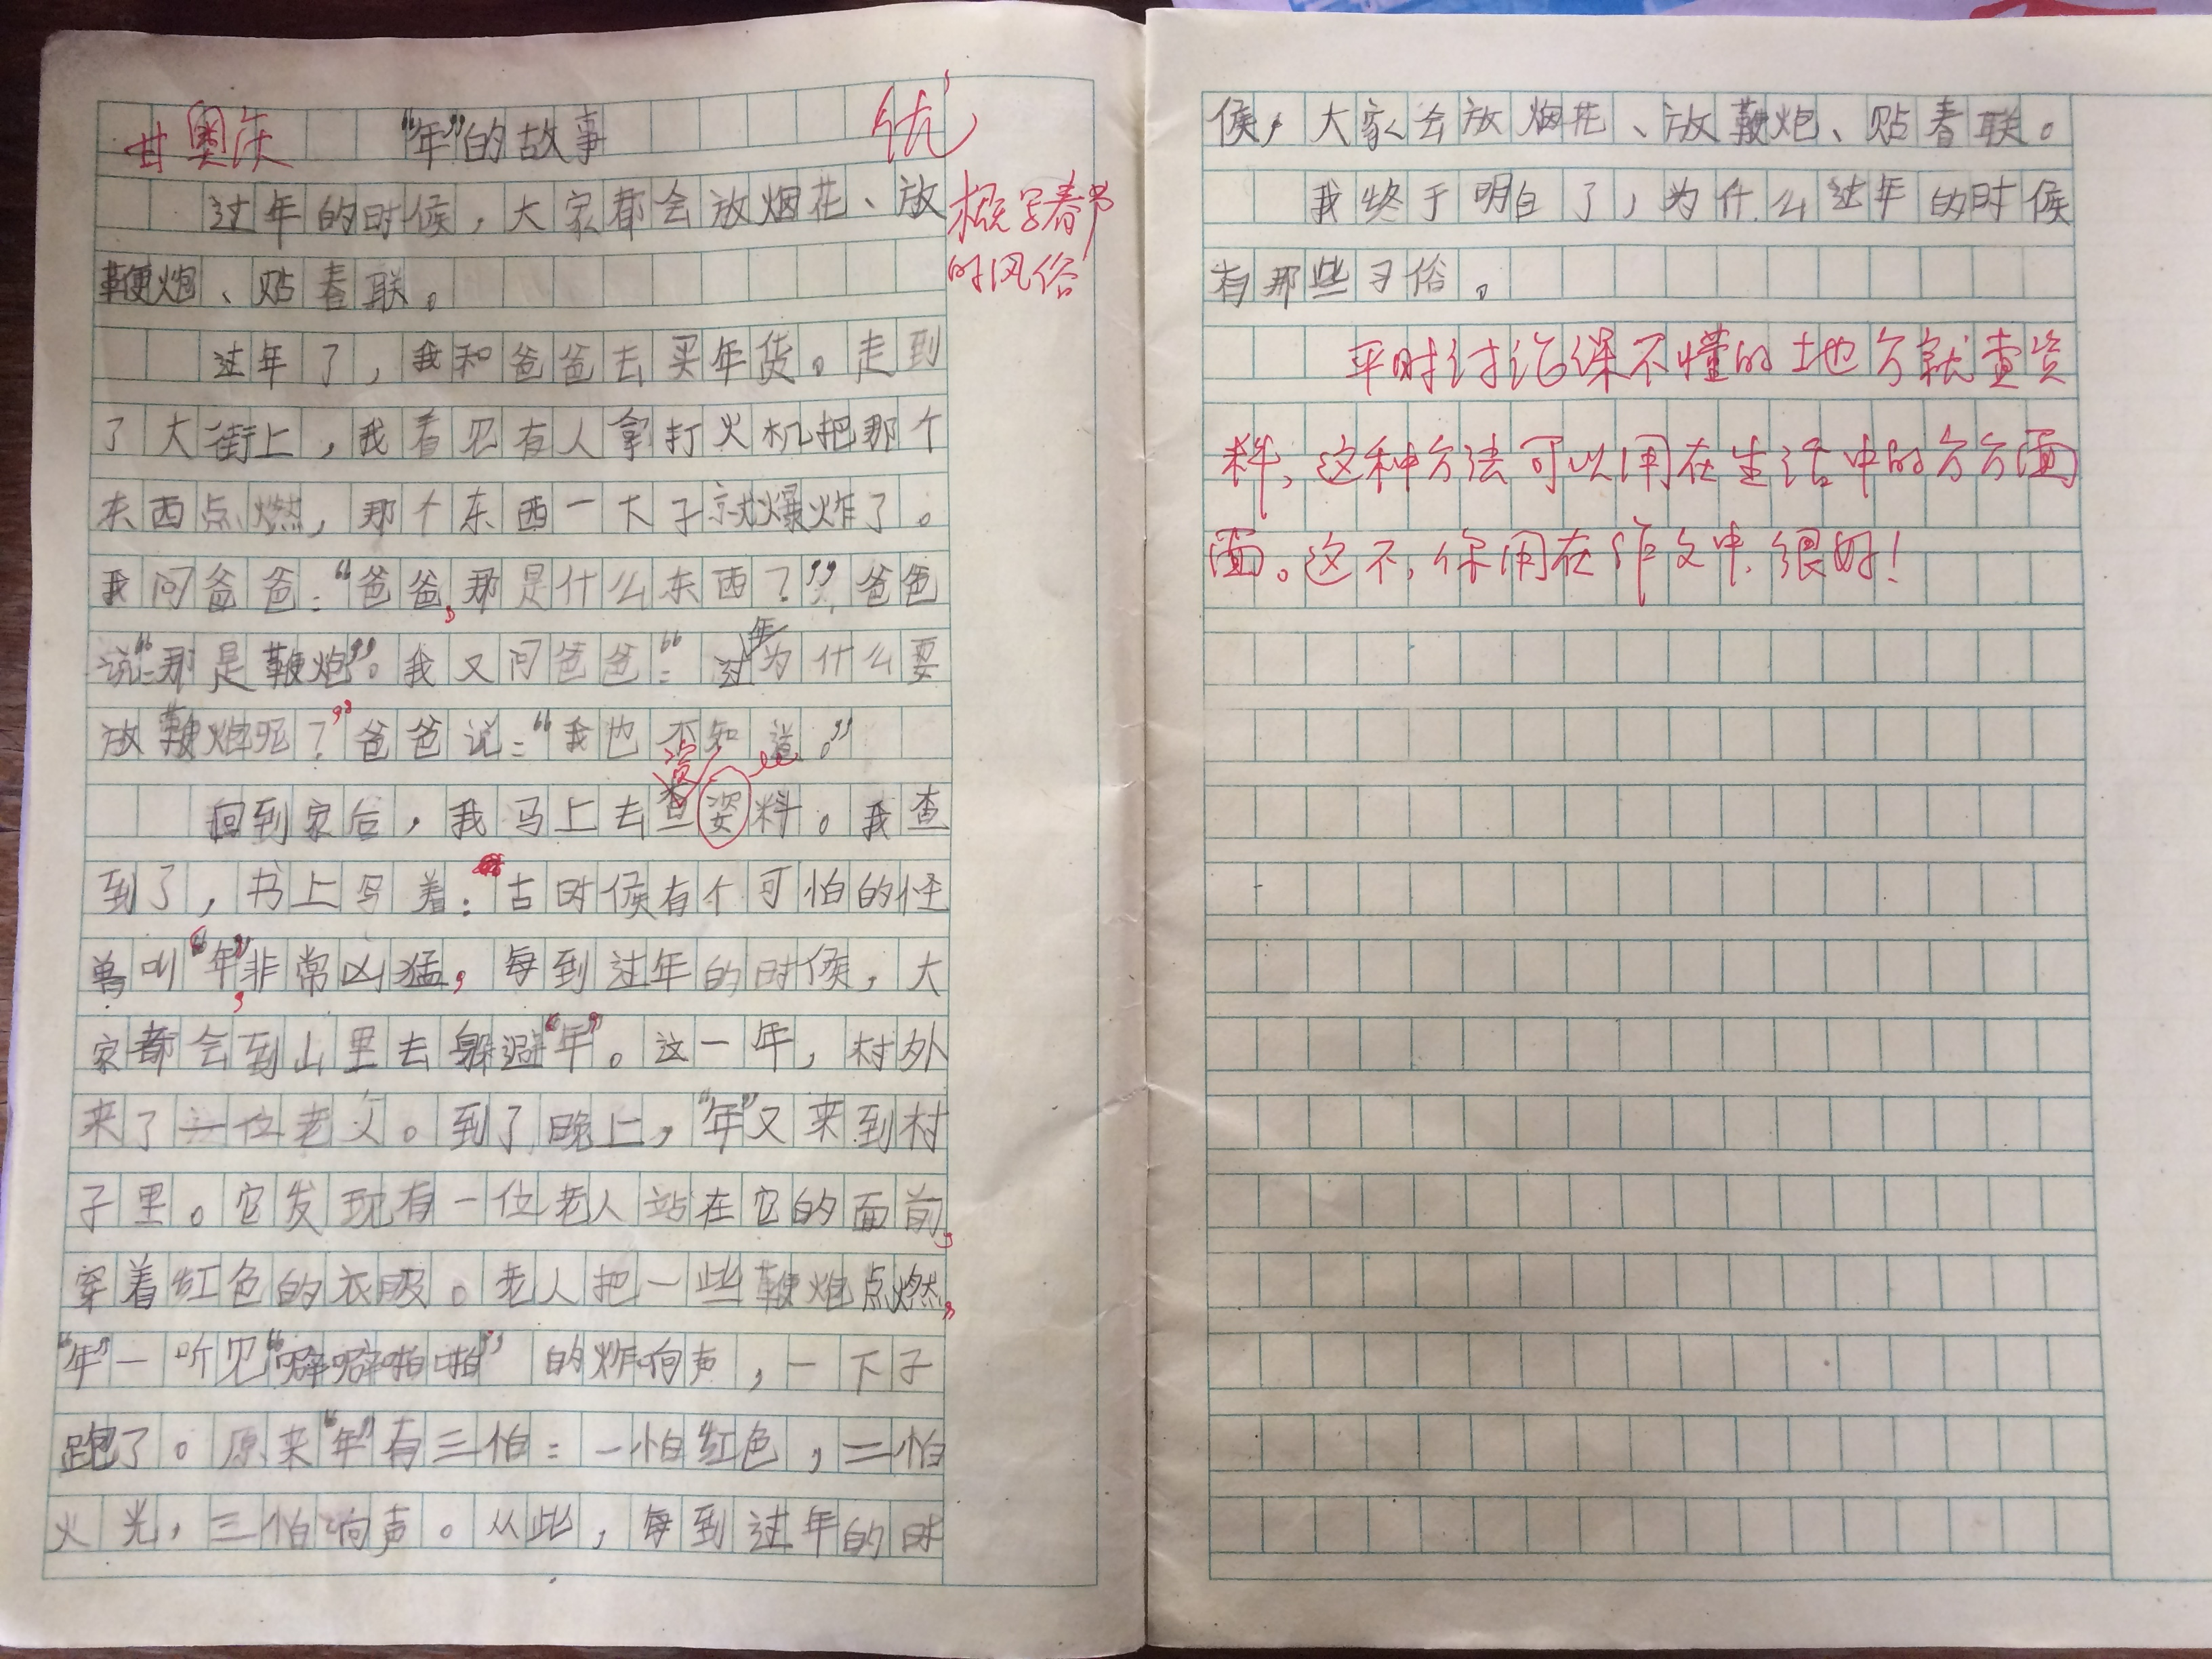 甘奥庆 “年”的故事 优
过年的时候，大家都会放烟花、放
概写春节
时风俗
鞭炮、贴春联。
过年了，我和爸爸去买年货。走到
了大街上，我看见有人拿打火机把那个
东西点燃，那个东西一下子就爆炸了。
我问爸爸：“爸爸，那是什么东西？”爸爸
说：“那是鞭炮”。我又问爸爸：“过年为什么要
放鞭炮呢？”爸爸说：“我也不知道。”
资
回到家后，我马上去查姿料。我查
到了，书上写着：古时候有个可怕的怪
兽叫“年”，非常凶猛，每到过年的时候，大
家都会到山里去躲避“年”。这一年，村外
来了一位老父。到了晚上，“年”又来到村
子里。它发现有一位老人站在它的面前，
穿着红色的衣服。老人把一些鞭炮点燃，
“年”一听见“噼噼啪啪”的炸响声，一下子
跑了。原来“年”有三怕：一怕红色，二怕
火光，三怕响声。从此，每到过年的时
候，大家会放烟花、放鞭炮、贴春联。
我终于明白了，为什么过年的时候
有那些习俗。
平时讨论课不懂的地方就查资
料，这种方法可以用在生活中的方方面
面。这不，你用在作文中，很好！